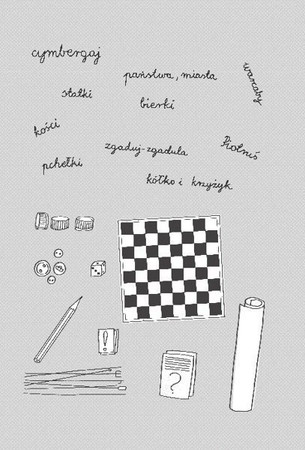 cymbergaj
państwa, miasta
warcaby
statki
bierki
kości
zgaduj-zgadula
Piotruś
pchełki
kółko i krzyżyk
!
?